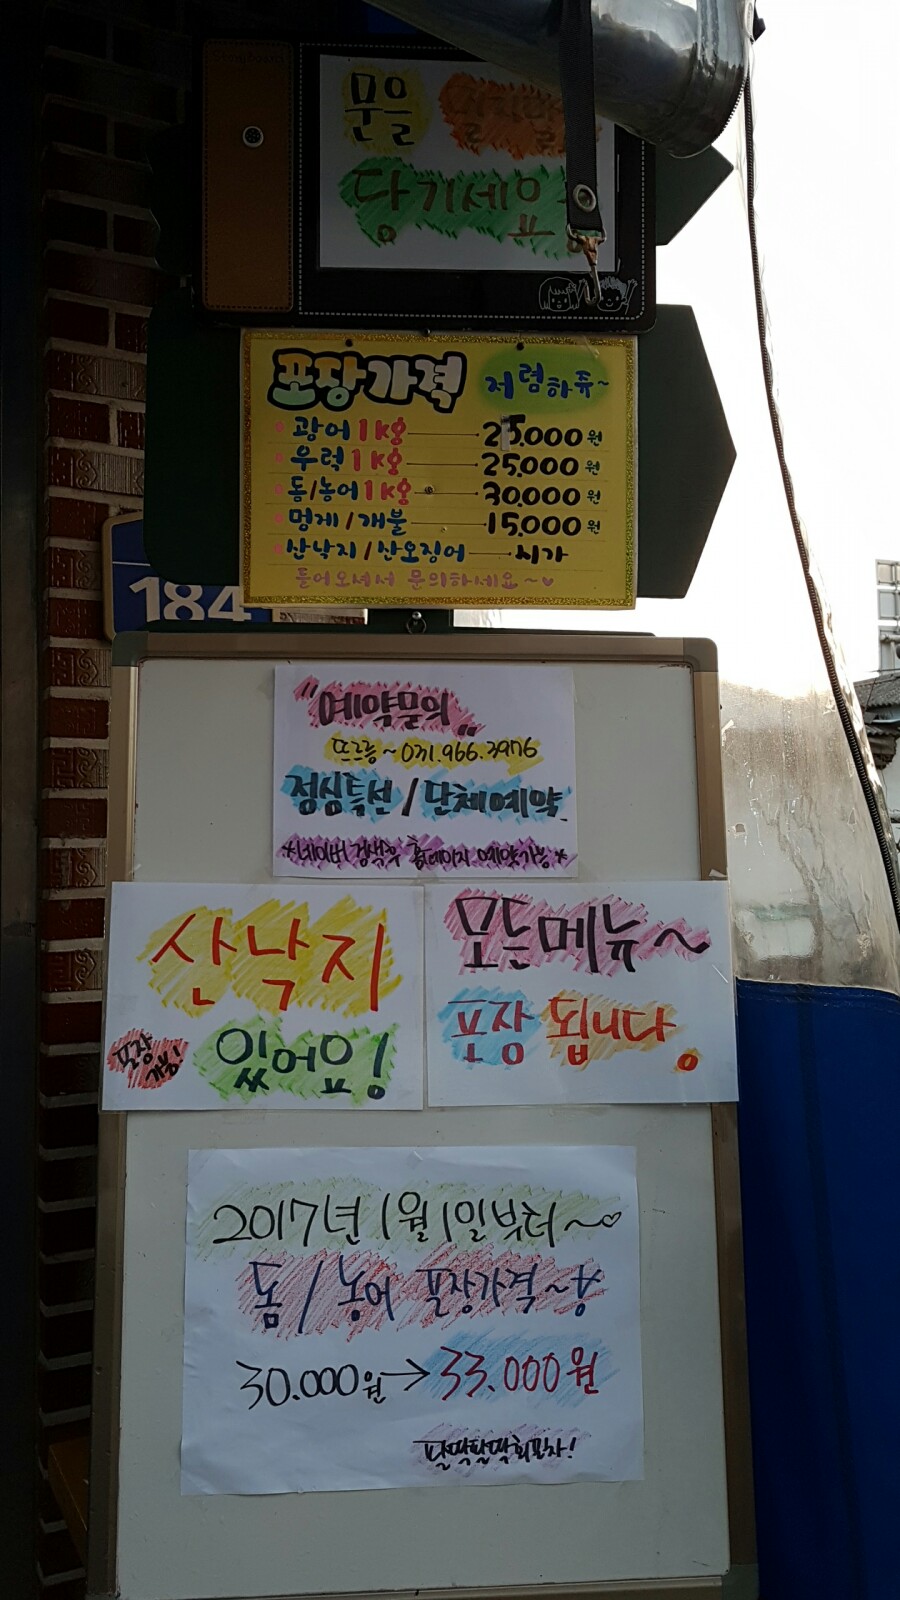 문을 살짝만
당기세요
포장가격 저렴하쥬~
광어 1kg 25.000원
우럭 1kg 25.000원
돔/농어 1kg 30.000원
멍게/개불 15.000원
산낙지/산오징어 시가
들어오셔서 문의하세요~♡
184
"예약문의"
뜨르릉~031.966.3976
점심특선/단체예약
*네이버 검색후 홈페이지 예약가능*
산낙지
포장가능!
있어요!
모든메뉴~
포장 됩니다.
2017년 1월 1일부터~♡
돔/농어 포장가격~
30.000원→33.000원
팔딱팔딱회포차!